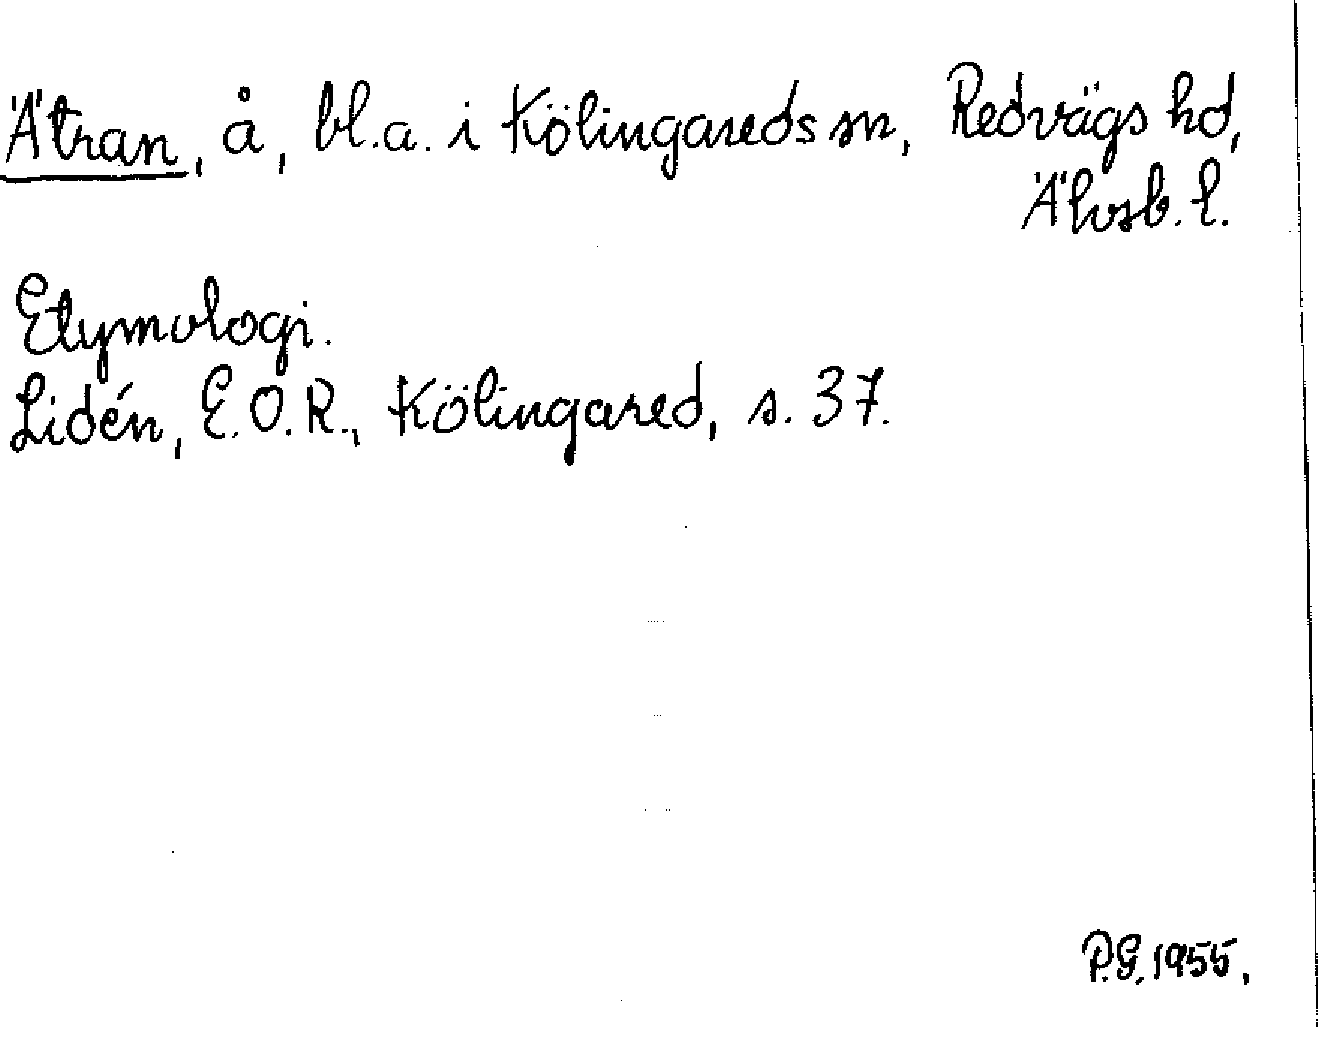 Ätran, å, bl.a. i Kölingareds sn, Redvägs hd,
Älvsb. l.
Etymologi.
Lidén, E. O. R., Kölingared, s. 37.
P.G. 1955.